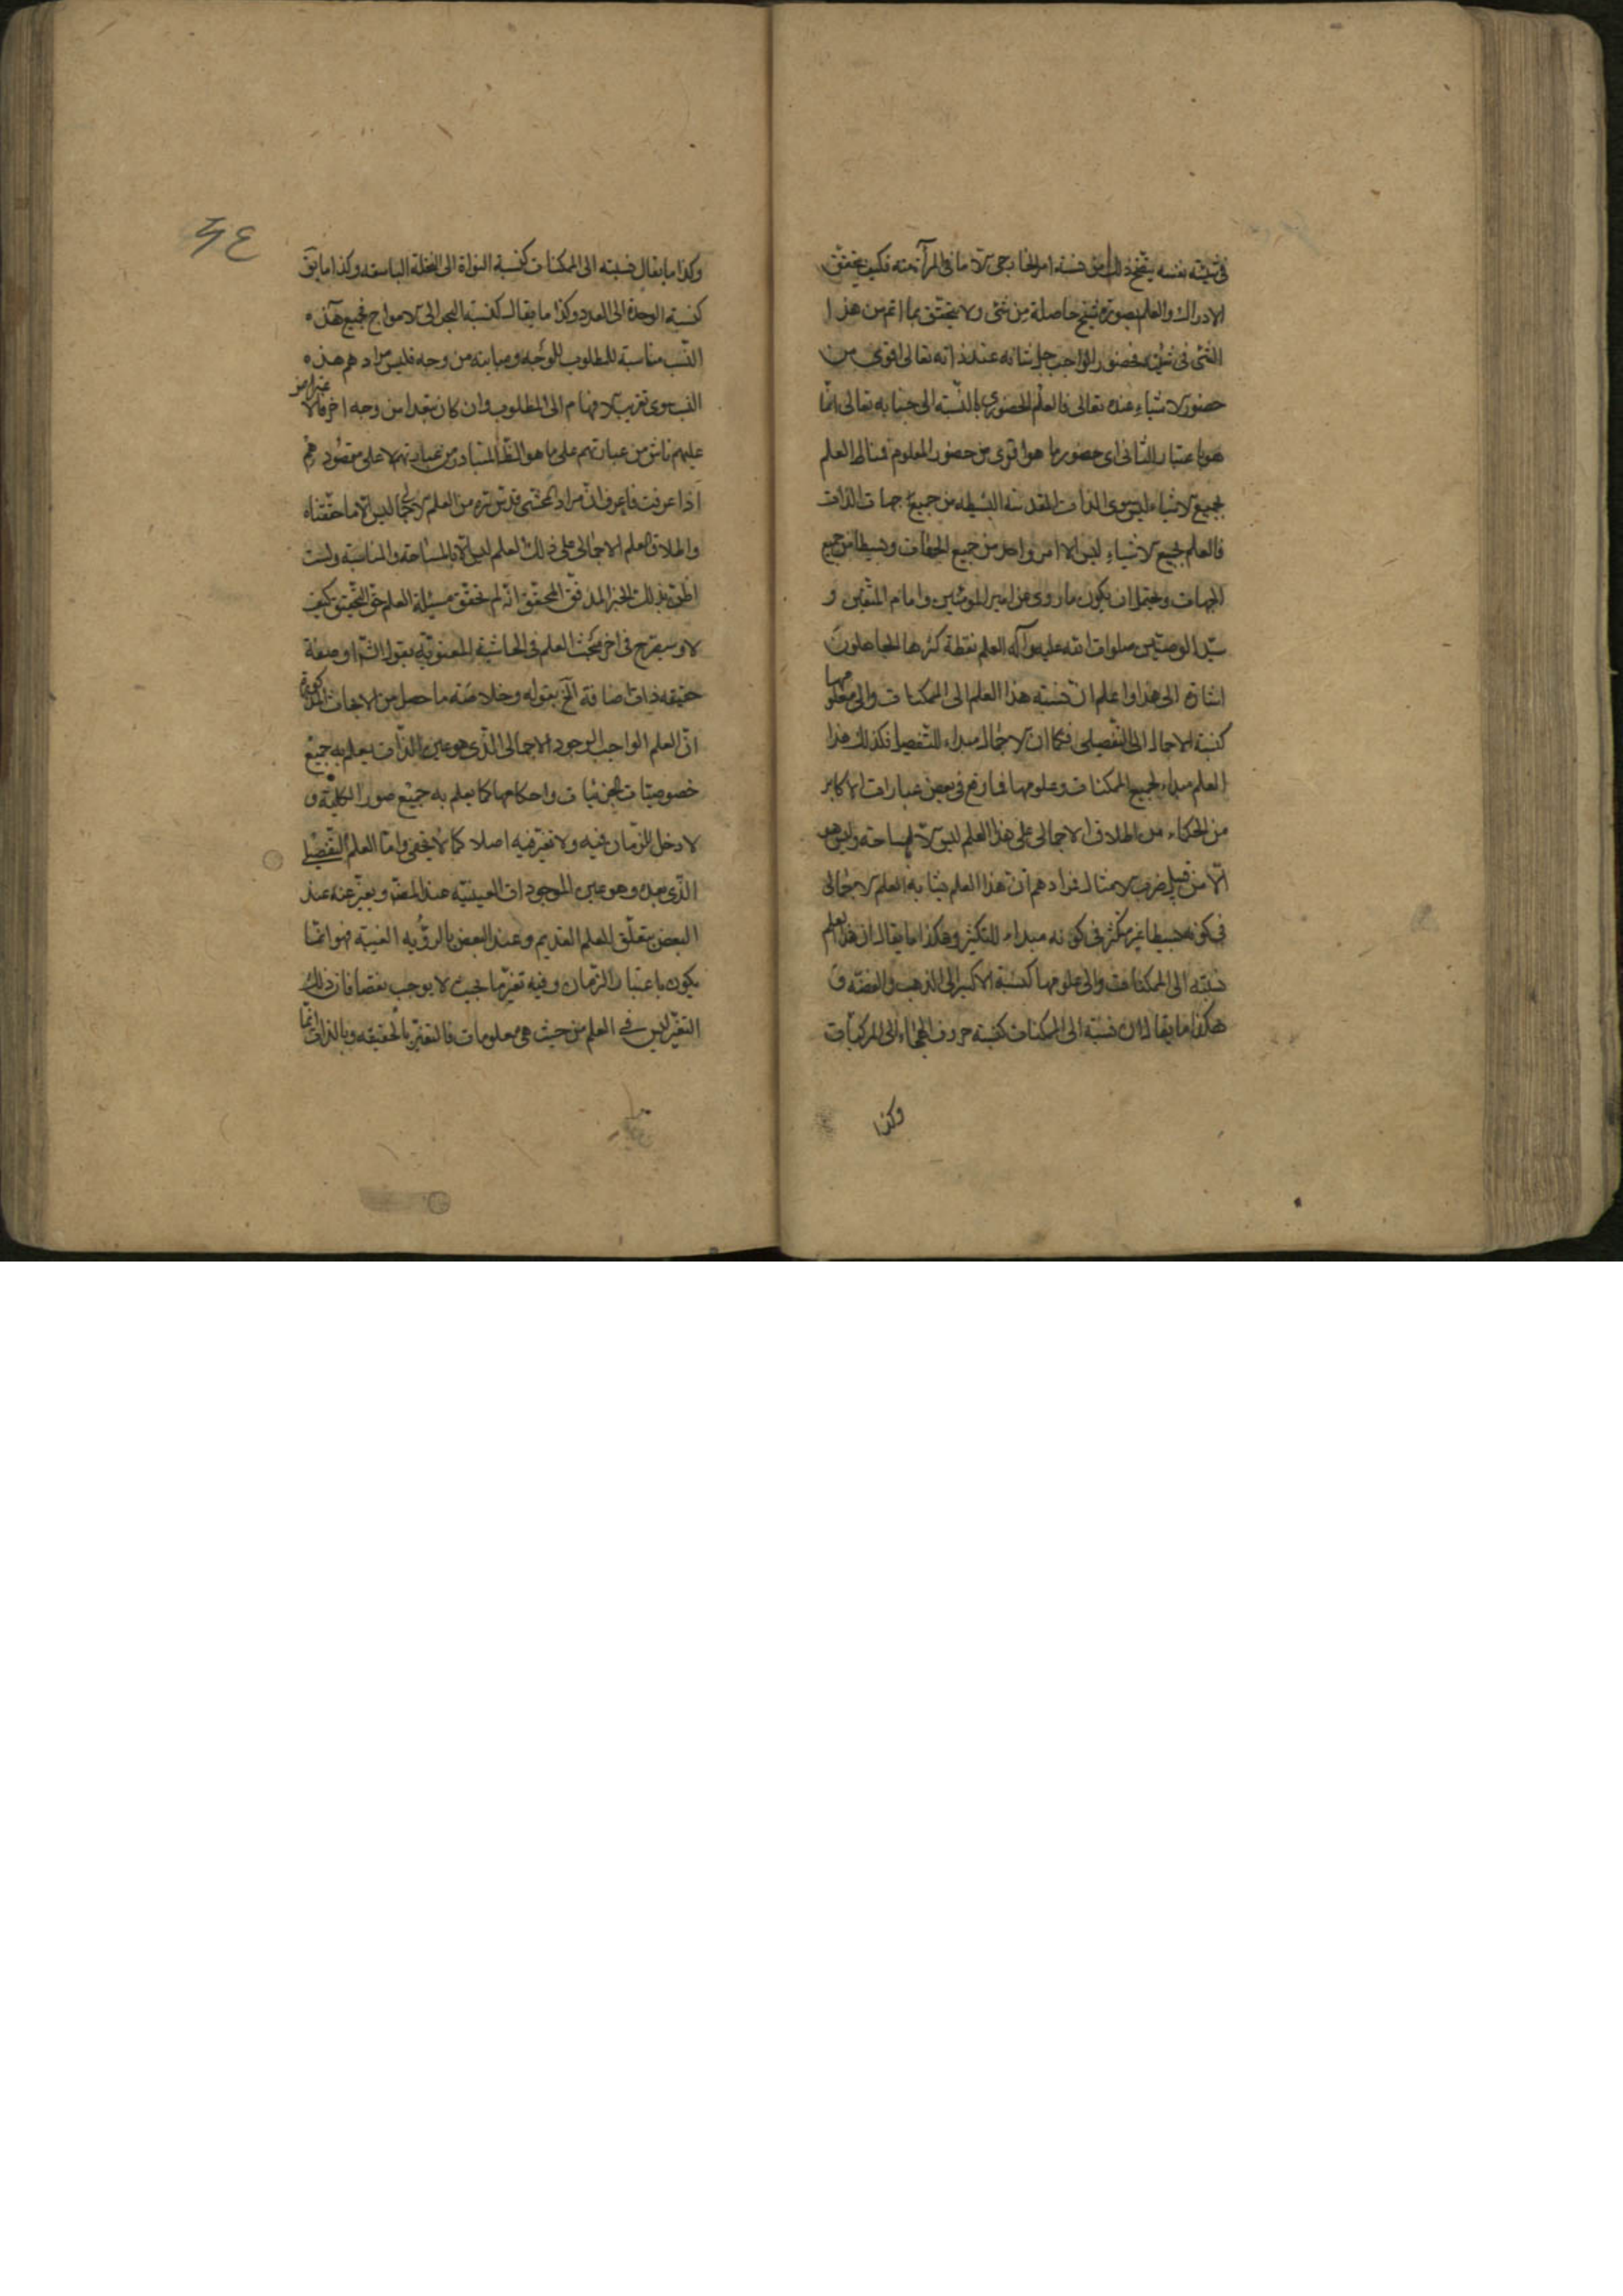 في شيئيته نفسه يتضح ذلك من نسبة امر الخارجي الا ما في المرآة منه فكيف يتحقق
الادراك والعلم بصورة شبح حاصلة من شئ ولا يتحقق بما اتم من هذا
الشئ في شيئيته فحضور الواجب جل شانه عند ذاته تعالى اقوى من
حضور الاشياء عنده تعالى فالعلم الحضوري بالنسبة الى جنابه تعالى انما
هو باعتبار الثاني اى حضور ما هو اقوى من حضور المعلوم فمناط العلم
بجميع الاشياء ليس سوى الذات المقدسة البسيطه من جميع جهات الذات
فالعلم بجميع الاشياء ليس الا امر واحد من جميع الجهات وبسيط من جميع
الجهات ويحتمل ان يكون ما روى عن امير المومنين وامام المتقين و
سيد الوصيين صلوات الله عليه وآله العلم نقطة كثرها الجاهلون
اشارة الى هذا واعلم ان نسبة هذا العلم الى الممكنات والى معلومها
كنسبة الاجمال الى التفصيل فكما ان الاجمال مبداء للتفصيل فكذلك هذا
العلم مبداء لجميع الممكنات وعلومها فما وقع في بعض عبارات الاكابر
من الحكماء من اطلاق الاجمالى على هذا العلم ليس الا لمسامحته وليس هو
الا من قبيل ضرب الامثال فمرادهم ان هذا العلم مشابه العلم الاجمالى
في كونه بسيطا غير متكثر في كونه مبداء للتكثر وهكذا ما يقال ان هذا العلم
نسبته الى الممكنات والى علومها كنسبة الاكسير الى الذهب والفضة و
هكذا ما يقال ان نسبته الى الممكنات كنسبة حروف الهجاء الى المركبات
وكذا
٣٤
وكذا ما يقال نسبته الى الممكنات كنسبة النواة الى النخلة الباسقه وكذا ما يق
كنسبة الوحدة الى العدد وكذا ما يقال كنسبة البحر الى الامواج فجميع هذه
النسب مناسبة للمطلوب لوجه ومباينه من وجه فليس مرادهم هذه
النسب سوى تقريب الافهام الى المطلوب وان كان مبعدا من وجه اخر فالاعتراض
عليهم ناش من عباراتهم على ما هو الظ المتبادر من عباراتهم لا على مقصودهم
اذا عرفت فاعرف ان مراد المحشى قدس سره من العلم الاجمالى ليس الا ما حققناه
واطلاق العلم الاجمالى على ذلك العلم ليس الا بالمسامحة والمناسبة ولست
اظن بذلك الحبر المدقق المحقق انه لم يحقق مسئلة العلم حق التحقيق كيف
لا وسيصرح في اخر مبحث العلم في الحاشية المعنونة بقوله انه او صفة
حقيقه ذات اضافة الخ بقوله وخلاصته ما حصل من الابحاث المذكورة
ان العلم الواجب الوجود الاجمالى الذى هو عين الذات يعلم به جميع
خصوصيات الجزئيات واحكامها كما يعلم به جميع صور الكلية و
لا دخل للزمان فيه ولا تغير فيه اصلا كما لا يخفى واما العلم التفصيلى
الذى بعده وهو عين الموجودات العينية عند المصنف ويعبر عنه عند
البعض بتعلق العلم القديم وعند البعض بالرؤيه العينية فهو انما
يكون باعتبار الزمان وفيه تغير ما بحيث لا يوجب نقصا فان ذلك
التغير ليس في العلم من حيث هى معلومات فالتغير بالحقيقه وبالذات انما